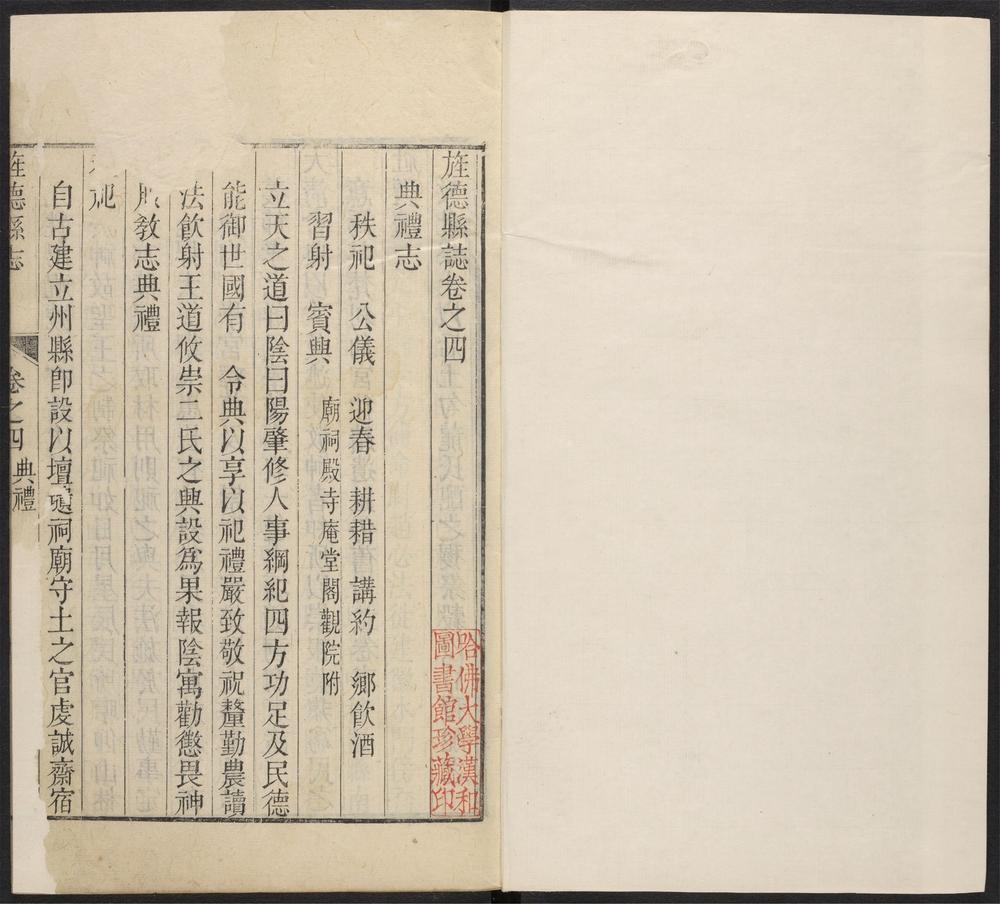 旌德縣誌卷之四
典禮志
秩祀 公儀 迎春 耕耤 講約 鄉飲酒
習射 賓興 廟祠殿寺庵堂閣觀院附
立天之道曰陰曰陽肇修人事綱紀四方功足及民德
能御世國有 令典以享以祀禮嚴致敬祝釐勤農讀
法飲射王道攸崇二氏之興設爲果報陰寓勸懲畏神
敎志典禮
祀
自古建立州縣卽設以壇壝祠廟守土之官虔誠齋宿
旌德縣志 卷之四 典禮
哈佛大學漢和
圖書館珍藏印